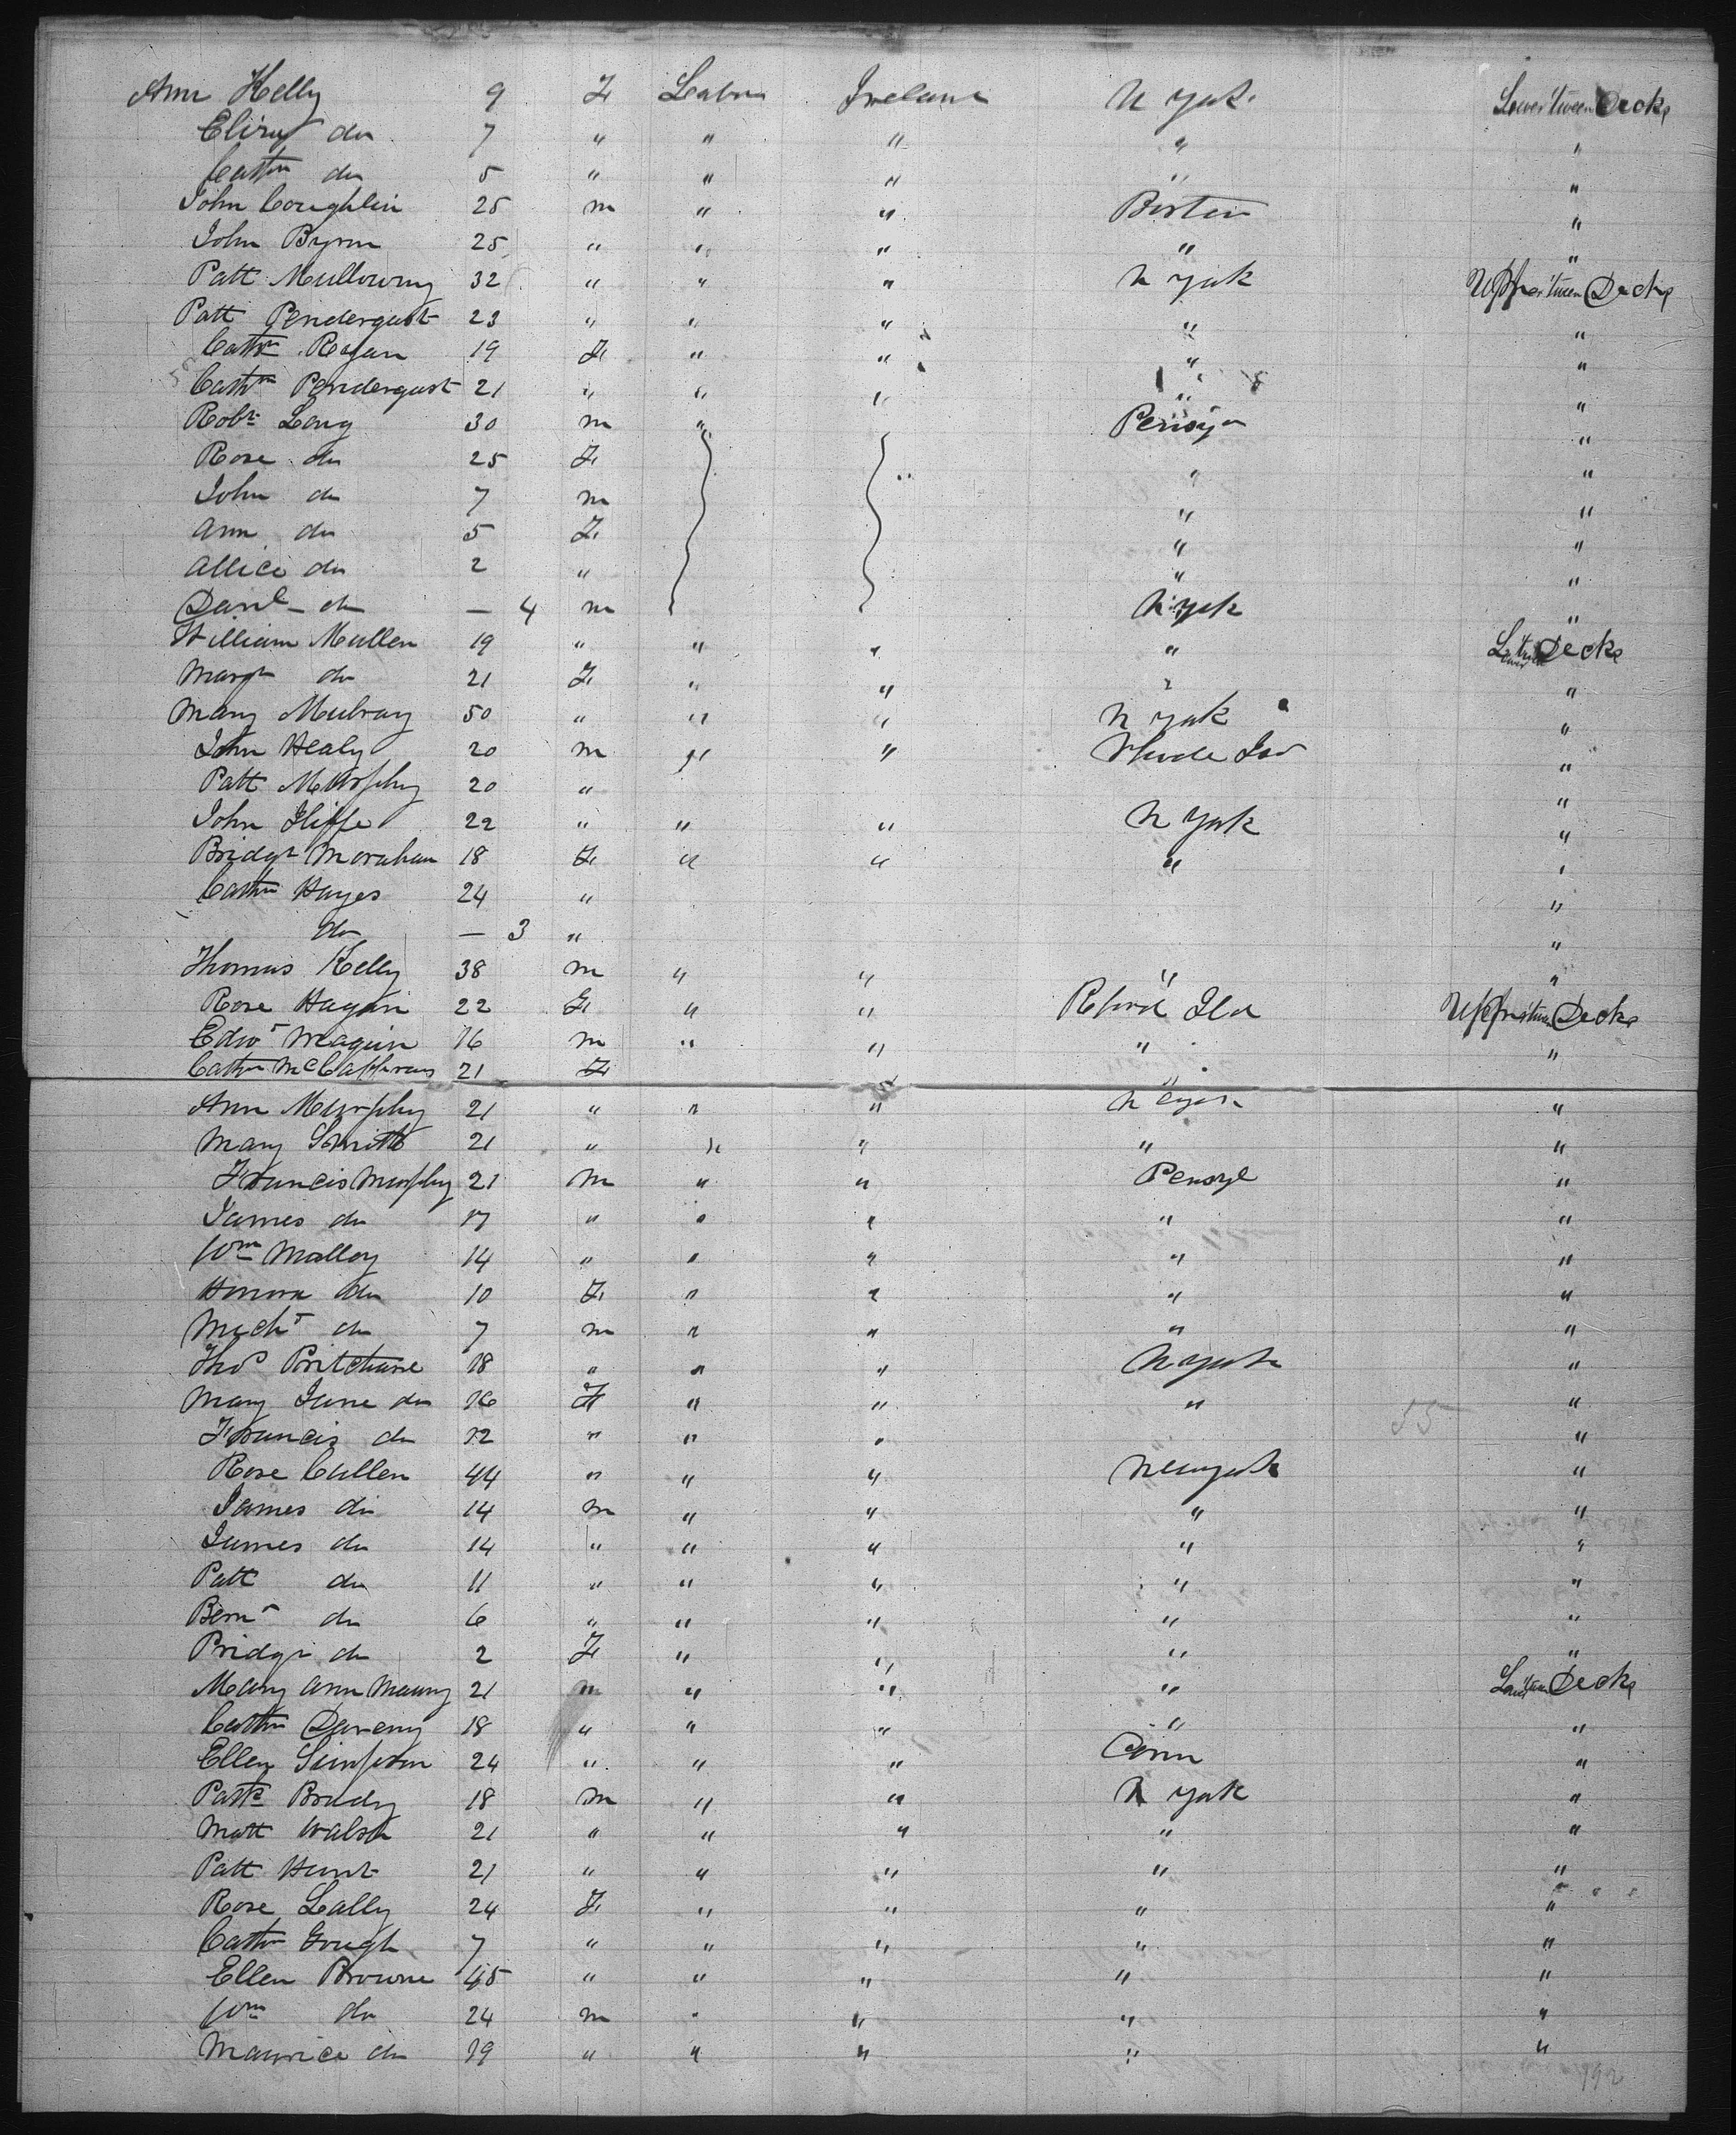 Ann Kelly 9 F Labour Ireland N York Lower tween Decks
Eliza do 7 " " " " "
Cathn do 5 " " " " "
John Coughlin 25 m " " Boston "
John Byrne 25 " " " " "
Patt Mullowny 32 " " " N York Upper tween Decks
Patt Pendergast 23 " " " " "
Cathn Regan 19 F " " " "
Cathn Pendergast 21 " " " " "
Robt Long 30 m " Pensya "
Rose do 25 F " "
John do 7 m " "
Ann do 5 F " "
Allice do 2 " " "
Danl do — 4 m N York "
William Mullen 19 " " " " Lower tween Decks
Margt do 21 F " " " "
Mary Mulvay 50 " " " N York "
John Healy 20 m " " Rhode Isd "
Patt Murphy 20 " "
John Iliffe 22 " " " N York "
Bridgt Morahan 18 F " " " "
Cathn Hayes 24 " "
do — 3 " "
Thomas Kelly 38 m " " " "
Rose Hagan 22 F " " Upper tween Decks
Edwd Maguin 16 m " " " "
Cathn McCafferous 21 F "
Ann Murphy 21 " " " N York "
Mary Smith 21 " " " " "
Francis Murphy 21 m " " Pensyl "
James do 17 " " " " "
Wm Malloy 14 " " " " "
Honora do 10 F " " " "
Michl do 7 m " " " "
Thos Pritchard 18 " " " N York "
Mary Jane do 16 F " " " 55 "
Francis do 12 " " " "
Rose Cullen 44 " " " New York "
James do 14 m " " " "
James do 14 " " " " "
Patt do 11 " " " " "
Bernd do 6 " " " " "
Bridgt do 2 F " " " "
Mary Ann Mauny 21 m " " " Lower tween Decks
Cathn Daveny 18 " " " " "
Ellen Simpson 24 " " " Conn "
Patk Brady 18 m " " N York "
Matt Walsh 21 " " " " "
Patt Hunt 21 " " " " "
Rose Lally 24 F " " " "
Cathn Gough 7 " " " " "
Ellen Browne 45 " " " " "
Wm do 24 m " " " "
Maurice do 19 " " " " "